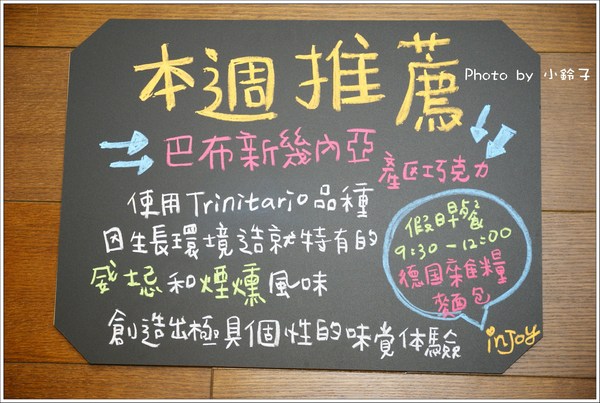 本週推薦
Photo by 小鈴子
巴布新幾內亞
產区巧克力
使用Trinitario品種
因生長環境造就特有的
威士忌和煙燻風味
創造出極具個性的味覺体驗
假日早餐
9:30-12:00
德国雜糧
麵包
injoy